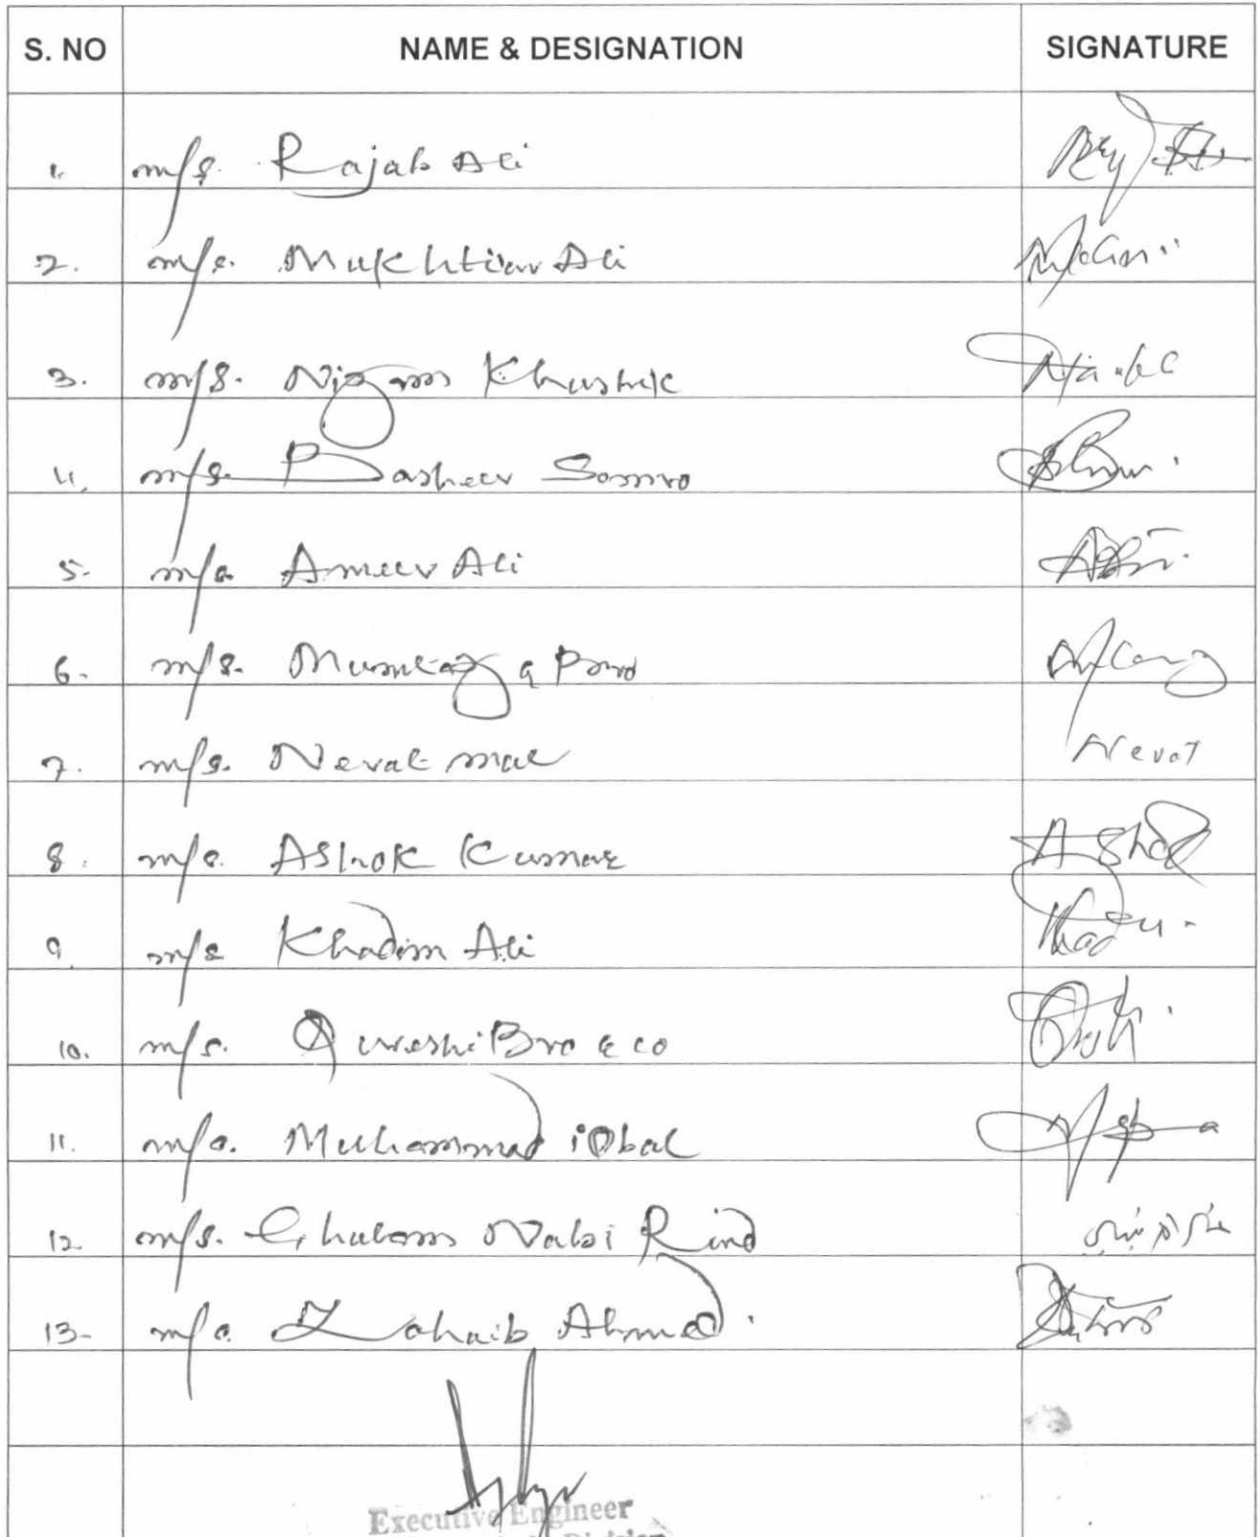 S. NO NAME & DESIGNATION SIGNATURE
1. m/s. Rajab Ali
2. m/s. Mukhtiar Ali
3. m/s. Nizam Khushik
4. m/s. Basheer Soomro
5. m/s. Ameer Ali
6. m/s. Mumtaz & Bro
7. m/s. Neval mal Nevat
8. m/s. Ashok Kumar Ashok
9. m/s Khadim Ali
10. m/s. Qureshi Bro & co
11. m/s. Muhammad iqbal
12. m/s. Ghulam Nabi Rind
13- m/s. Zohaib Ahmed.
Executive Engineer
Division